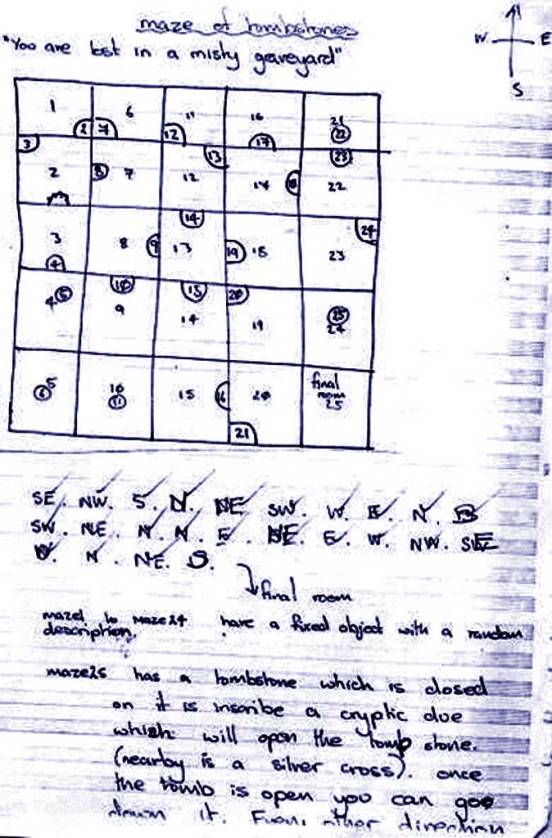 maze of tombstones
"You are lost in a misty graveyard"
W E
S
1 6 11 16 21
2 7 12 17 22
3 13 23
2 7 12 14 22
8 18
14 24
3 8 9 13 19 15 23
4
4 5 10 9 15 14 20 19 25 24
5 6 10 11 15 16 20 final
room
25
21
SE. NW. S. D. NE SW. W. E. N.
SW. NE. N. N. E. NE. E. W. NW. SE
N. NE. S.
final room
maze1 to maze24 have a fixed object with a random
description.
maze25 has a tombstone which is closed
on it is inscribe a cryptic clue
which will open the tomb stone.
(nearby is a silver cross). once
the tomb is open you can goe
down it. From other direction